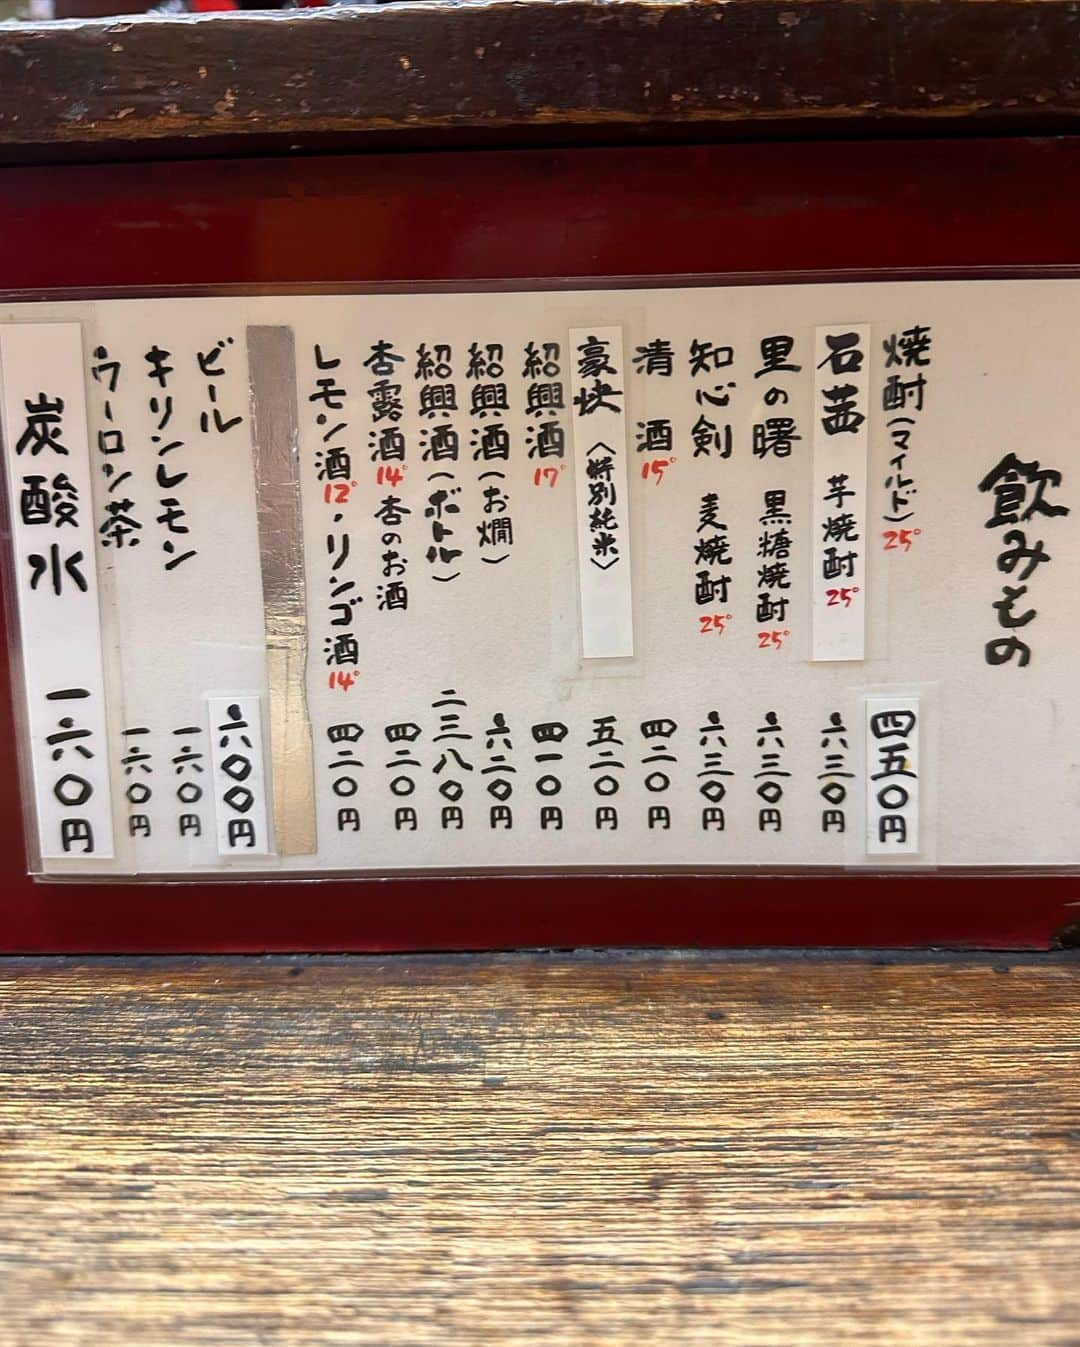 飲みもの
焼酎(マイルド)25° 四五〇円
石茜 芋焼酎 25° 六三〇円
里の曙 黒糖焼酎 25° 六三〇円
知心剣 麦焼酎 25° 六三〇円
清酒 15° 四二〇円
豪快〈特別純米〉 五二〇円
紹興酒 17° 四一〇円
紹興酒(お燗) 六二〇円
紹興酒(ボトル) 二三八〇円
杏露酒 14° 杏のお酒 四二〇円
レモン酒 12°・リンゴ酒 14° 四二〇円
ビール 六〇〇円
キリンレモン 一六〇円
ウーロン茶 一六〇円
炭酸水 一六〇円